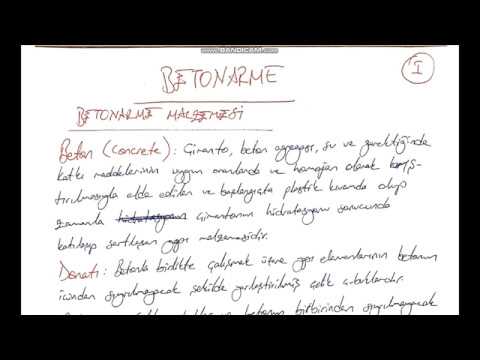 www.BANDICAM.com
BETONARME
I
BETONARME MALZEMESİ
Beton (Concrete): Çimento, beton agregası, su ve gerektiğinde
katkı maddelerinin uygun oranlarda ve homojen olarak karış-
tırılmasıyla elde edilen ve başlangıçta plastik kıvamda olup
zamanla hidratasyonu çimentonun hidratasyonu sonucunda
katılaşıp sertleşen yapı malzemesidir.
Donatı: Betonla birlikte çalışmak üzere yapı elemanlarının betonun
içinden sıyrılmayacak şekilde yerleştirilmiş çelik çubuklardır.
ve betonun birbirinden sıyrılmayacak